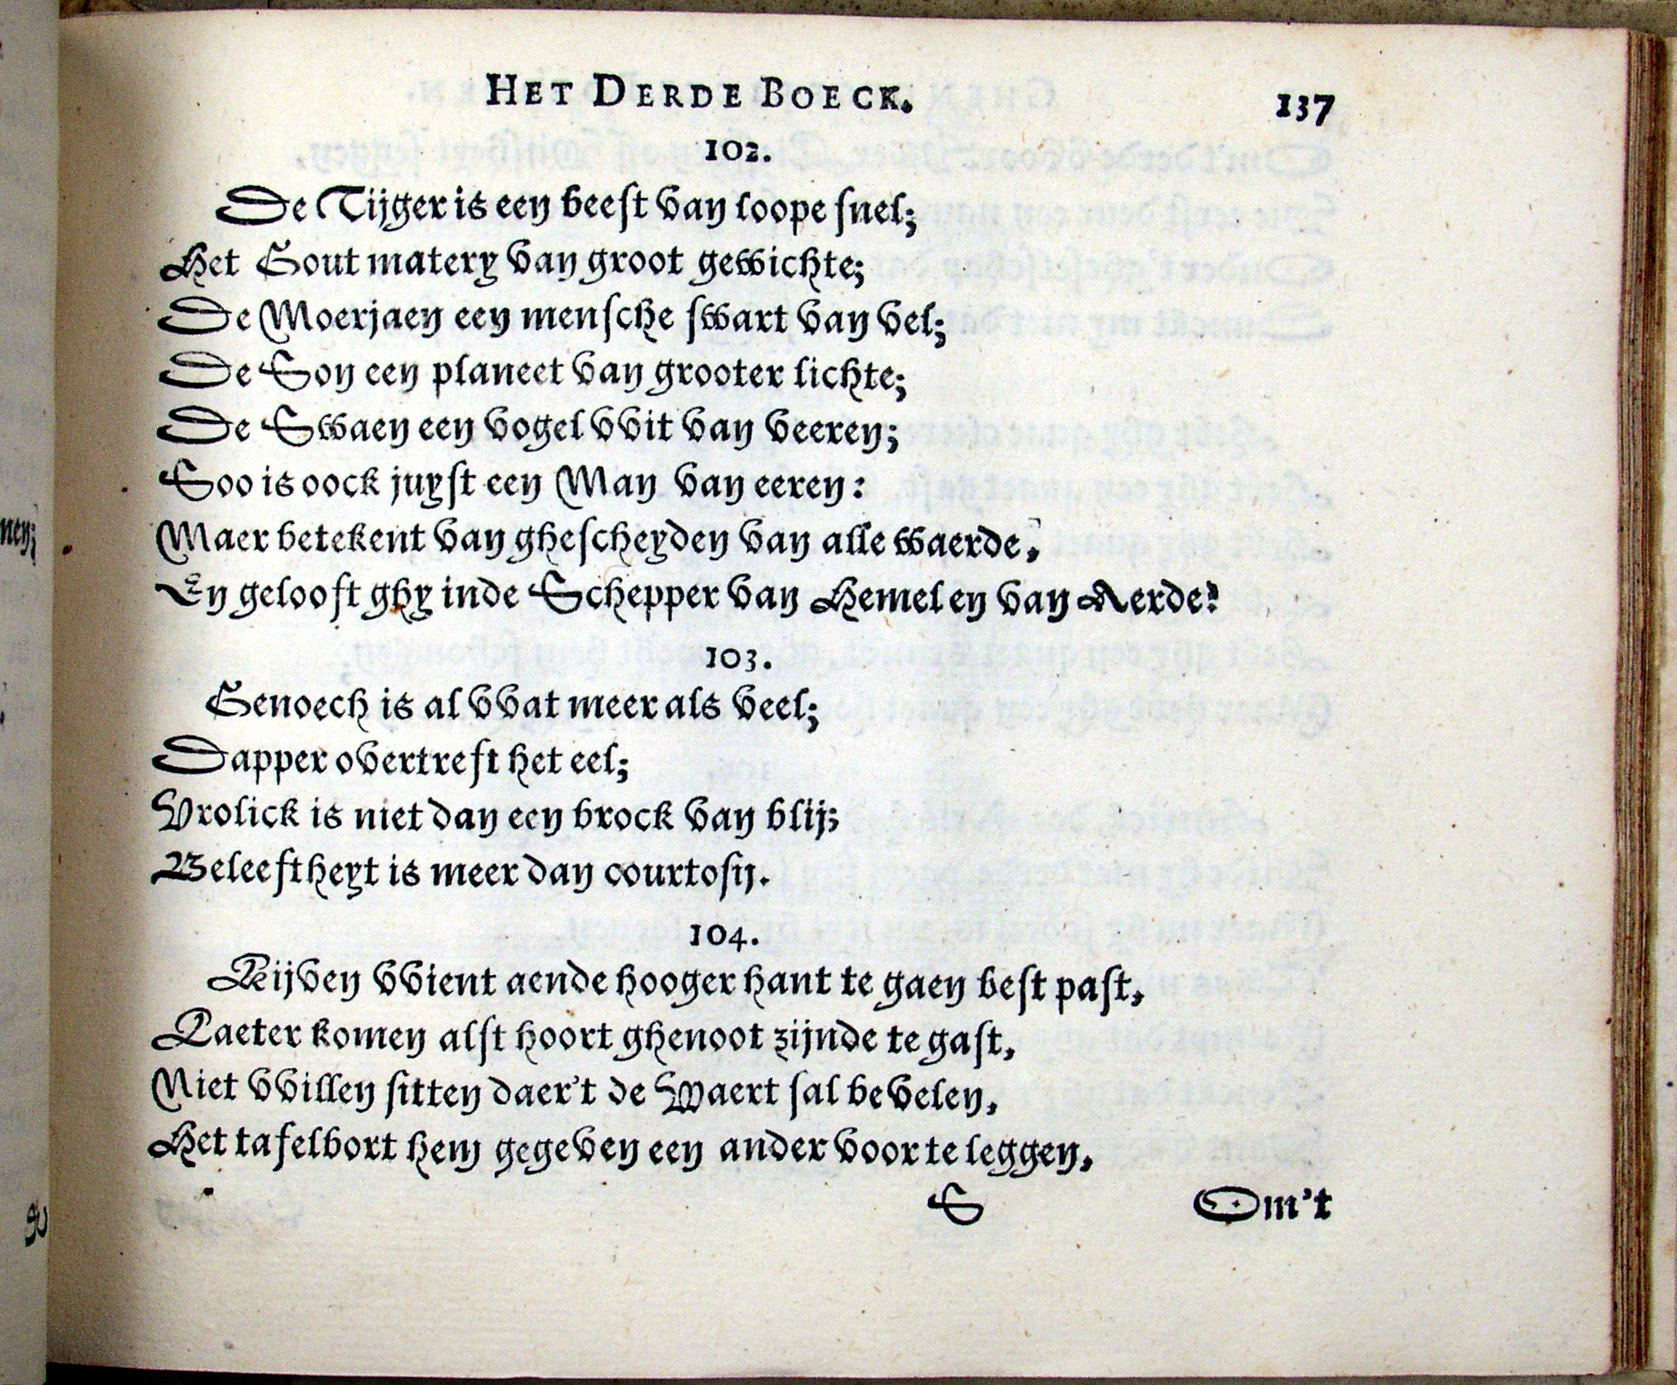 HET DERDE BOECK. 137
102.
De Tijger is een beest van loope snel;
Het Gout matery van groot gewichte;
De Moerjaen een mensche swart van vel;
De Son een planeet van grooter lichte;
De Swaen een vogel vvit van veeren;
Soo is oock juyst een Man van eeren:
Maer betekent van ghescheyden van alle waerde,
En gelooft ghy inde Schepper van Hemel en van Aerde?
103.
Genoech is al vvat meer als veel;
Dapper overtreft het eel;
Vrolick is niet dan een brock van blij;
Beleeftheyt is meer dan courtosij.
104.
Rijven vvient aende hooger hant te gaen best past,
Laeter komen alst hoort ghenoot zijnde te gast,
Niet vvillen sitten daer't de Waert sal bevelen,
Het tafelbort hem gegeven een ander voor te leggen,
S Om't
nen;